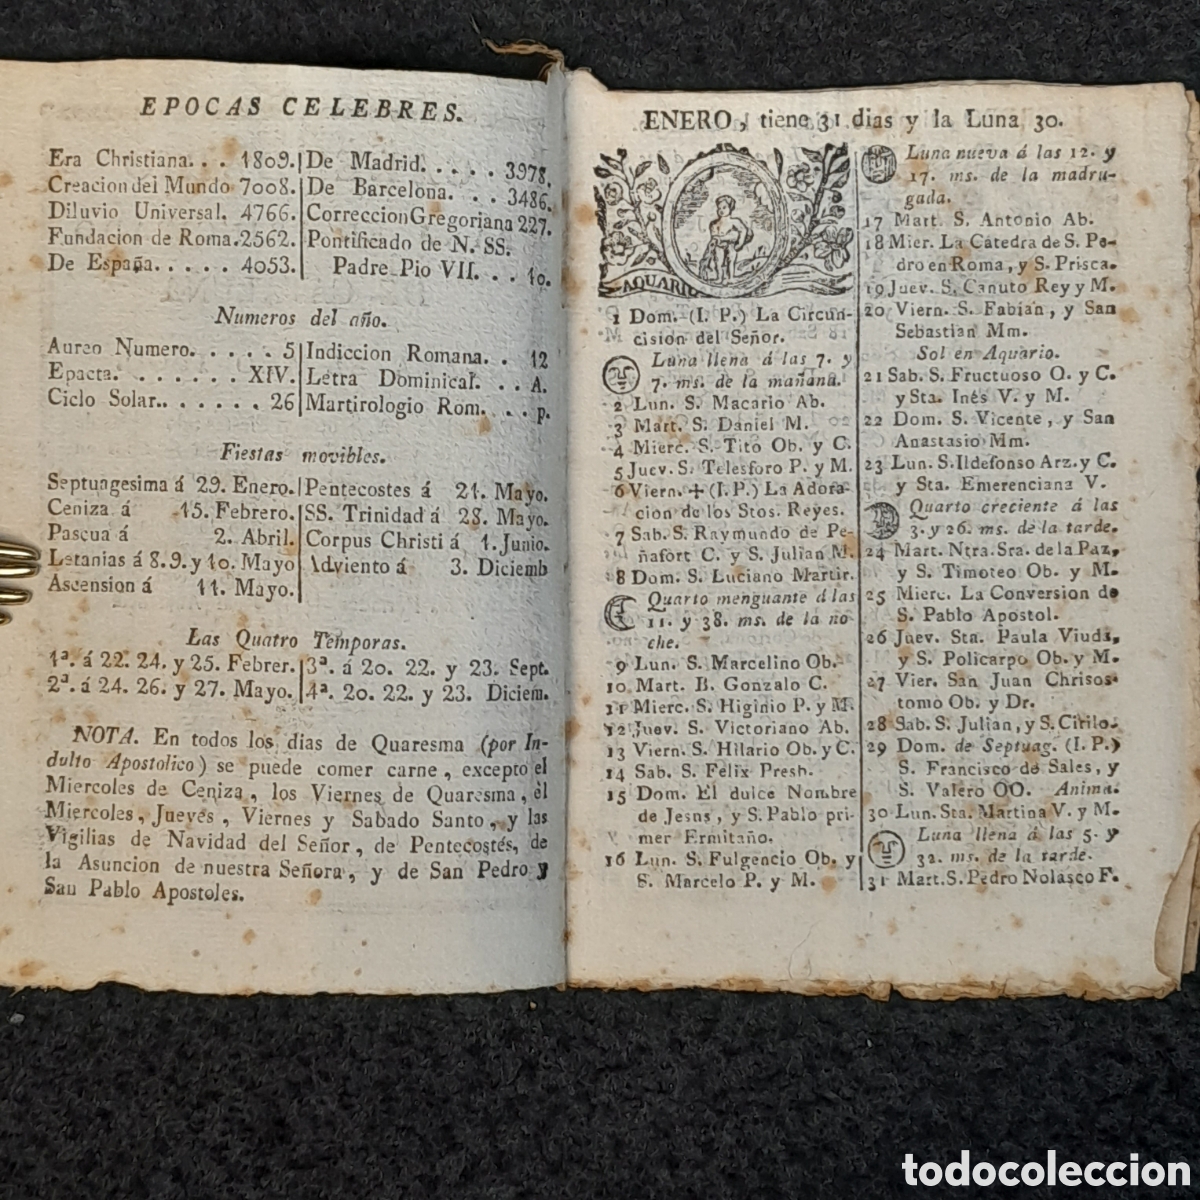 EPOCAS CELEBRES.
Era Christiana. . . 1809.
Creacion del Mundo 7008.
Diluvio Universal. 4766.
Fundacion de Roma. 2562.
De España. . . . . 4053.
De Madrid. . . . . 3978.
De Barcelona. . . 3486.
Correccion Gregoriana 227.
Pontificado de N. SS.
Padre Pio VII. . . 10.
Numeros del año.
Aureo Numero. . . . . 5
Epacta. . . . . . . XIV.
Ciclo Solar. . . . . . 26
Indiccion Romana. . 12
Letra Dominical. . . A.
Martirologio Rom. . . p.
Fiestas movibles.
Septuagesima á 29. Enero.
Ceniza á 15. Febrero.
Pascua á 2. Abril.
Letanias á 8. 9. y 10. Mayo
Ascension á 11. Mayo.
Pentecostes á 21. Mayo.
SS. Trinidad á 28. Mayo.
Corpus Christi á 1. Junio.
Adviento á 3. Diciemb
Las Quatro Temporas.
1ª. á 22. 24. y 25. Febrer.
2ª. á 24. 26. y 27. Mayo.
3ª. á 20. 22. y 23. Sept.
4ª. 20. 22. y 23. Diciem.
NOTA. En todos los dias de Quaresma (por In-
dulto Apostolico) se puede comer carne, excepto el
Miercoles de Ceniza, los Viernes de Quaresma, el
Miercoles, Jueves, Viernes y Sabado Santo, y las
Vigilias de Navidad del Señor, de Pentecostés, de
la Asuncion de nuestra Señora, y de San Pedro y
San Pablo Apostoles.
ENERO, tiene 31 dias y la Luna 30.
AQUARIO
1 Dom. (I. P.) La Circun-
cisión del Señor.
Luna llena á las 7. y
7. ms. de la mañana.
2 Lun. S. Macario Ab.
3 Mart. S. Daniel M.
4 Mierc. S. Tito Ob. y C.
5 Juev. S. Telesforo P. y M.
6 Viern. + (I. P.) La Adora-
cion de los Stos. Reyes.
7 Sab. S. Raymundo de Pe-
ñafort C. y S. Julian M.
8 Dom. S. Luciano Martir.
Quarto menguante á las
11. y 38. ms. de la no-
che.
9 Lun. S. Marcelino Ob.
10 Mart. B. Gonzalo C.
11 Mierc. S. Higinio P. y M.
12 Juev. S. Victoriano Ab.
13 Viern. S. Hilario Ob. y C.
14 Sab. S. Felix Presb.
15 Dom. El dulce Nombre
de Jesns, y S. Pablo pri-
mer Ermitaño.
16 Lun. S. Fulgencio Ob. y
S. Marcelo P. y M.
Luna nueva á las 12. y
17. ms. de la madru-
gada.
17 Mart. S. Antonio Ab.
18 Mier. La Catedra de S. Pe-
dro en Roma, y S. Prisca.
19 Juev. S. Canuto Rey y M.
20 Viern. S. Fabian, y San
Sebastian Mm.
Sol en Aquario.
21 Sab. S. Fructuoso O. y C.
y Sta. Inés V. y M.
22 Dom. S. Vicente, y San
Anastasio Mm.
23 Lun. S. Ildefonso Arz. y C.
y Sta. Emerenciana V.
Quarto creciente á las
3. y 26. ms. de la tarde.
24 Mart. Ntra. Sra. de la Paz,
y S. Timoteo Ob. y M.
25 Mierc. La Conversion de
S. Pablo Apostol.
26 Juev. Sta. Paula Viuda,
y S. Policarpo Ob. y M.
27 Vier. San Juan Chrisos-
tomo Ob. y Dr.
28 Sab. S. Julian, y S. Cirilo.
29 Dom. de Septuag. (I. P.)
S. Francisco de Sales, y
S. Valero OO. Anima.
30 Lun. Sta. Martina V. y M.
Luna llena á las 5. y
32. ms. de la tarde.
31 Mart. S. Pedro Nolasco F.
todocoleccion